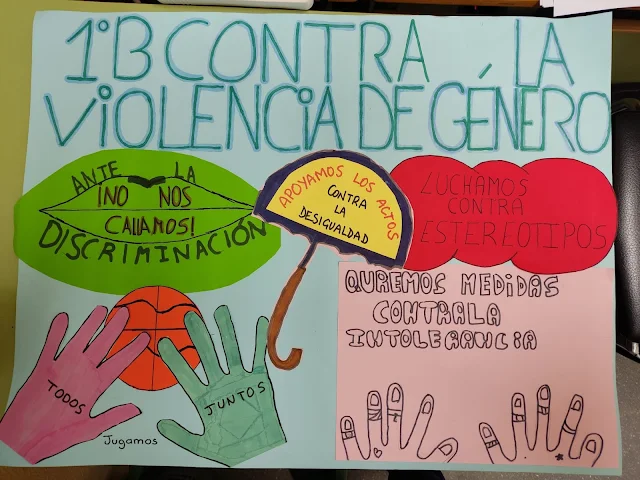 1ºB CONTRA LA
VIOLENCIA DE GÉNERO
ANTE LA
¡NO NOS
CALLAMOS!
DISCRIMINACIÓN
APOYAMOS LOS ACTOS
CONTRA
LA
DESIGUALDAD
LUCHAMOS
CONTRA
ESTEREOTIPOS
QUREMOS MEDIDAS
CONTRALA
INTOLERANCIA
TODOS
JUNTOS
Jugamos